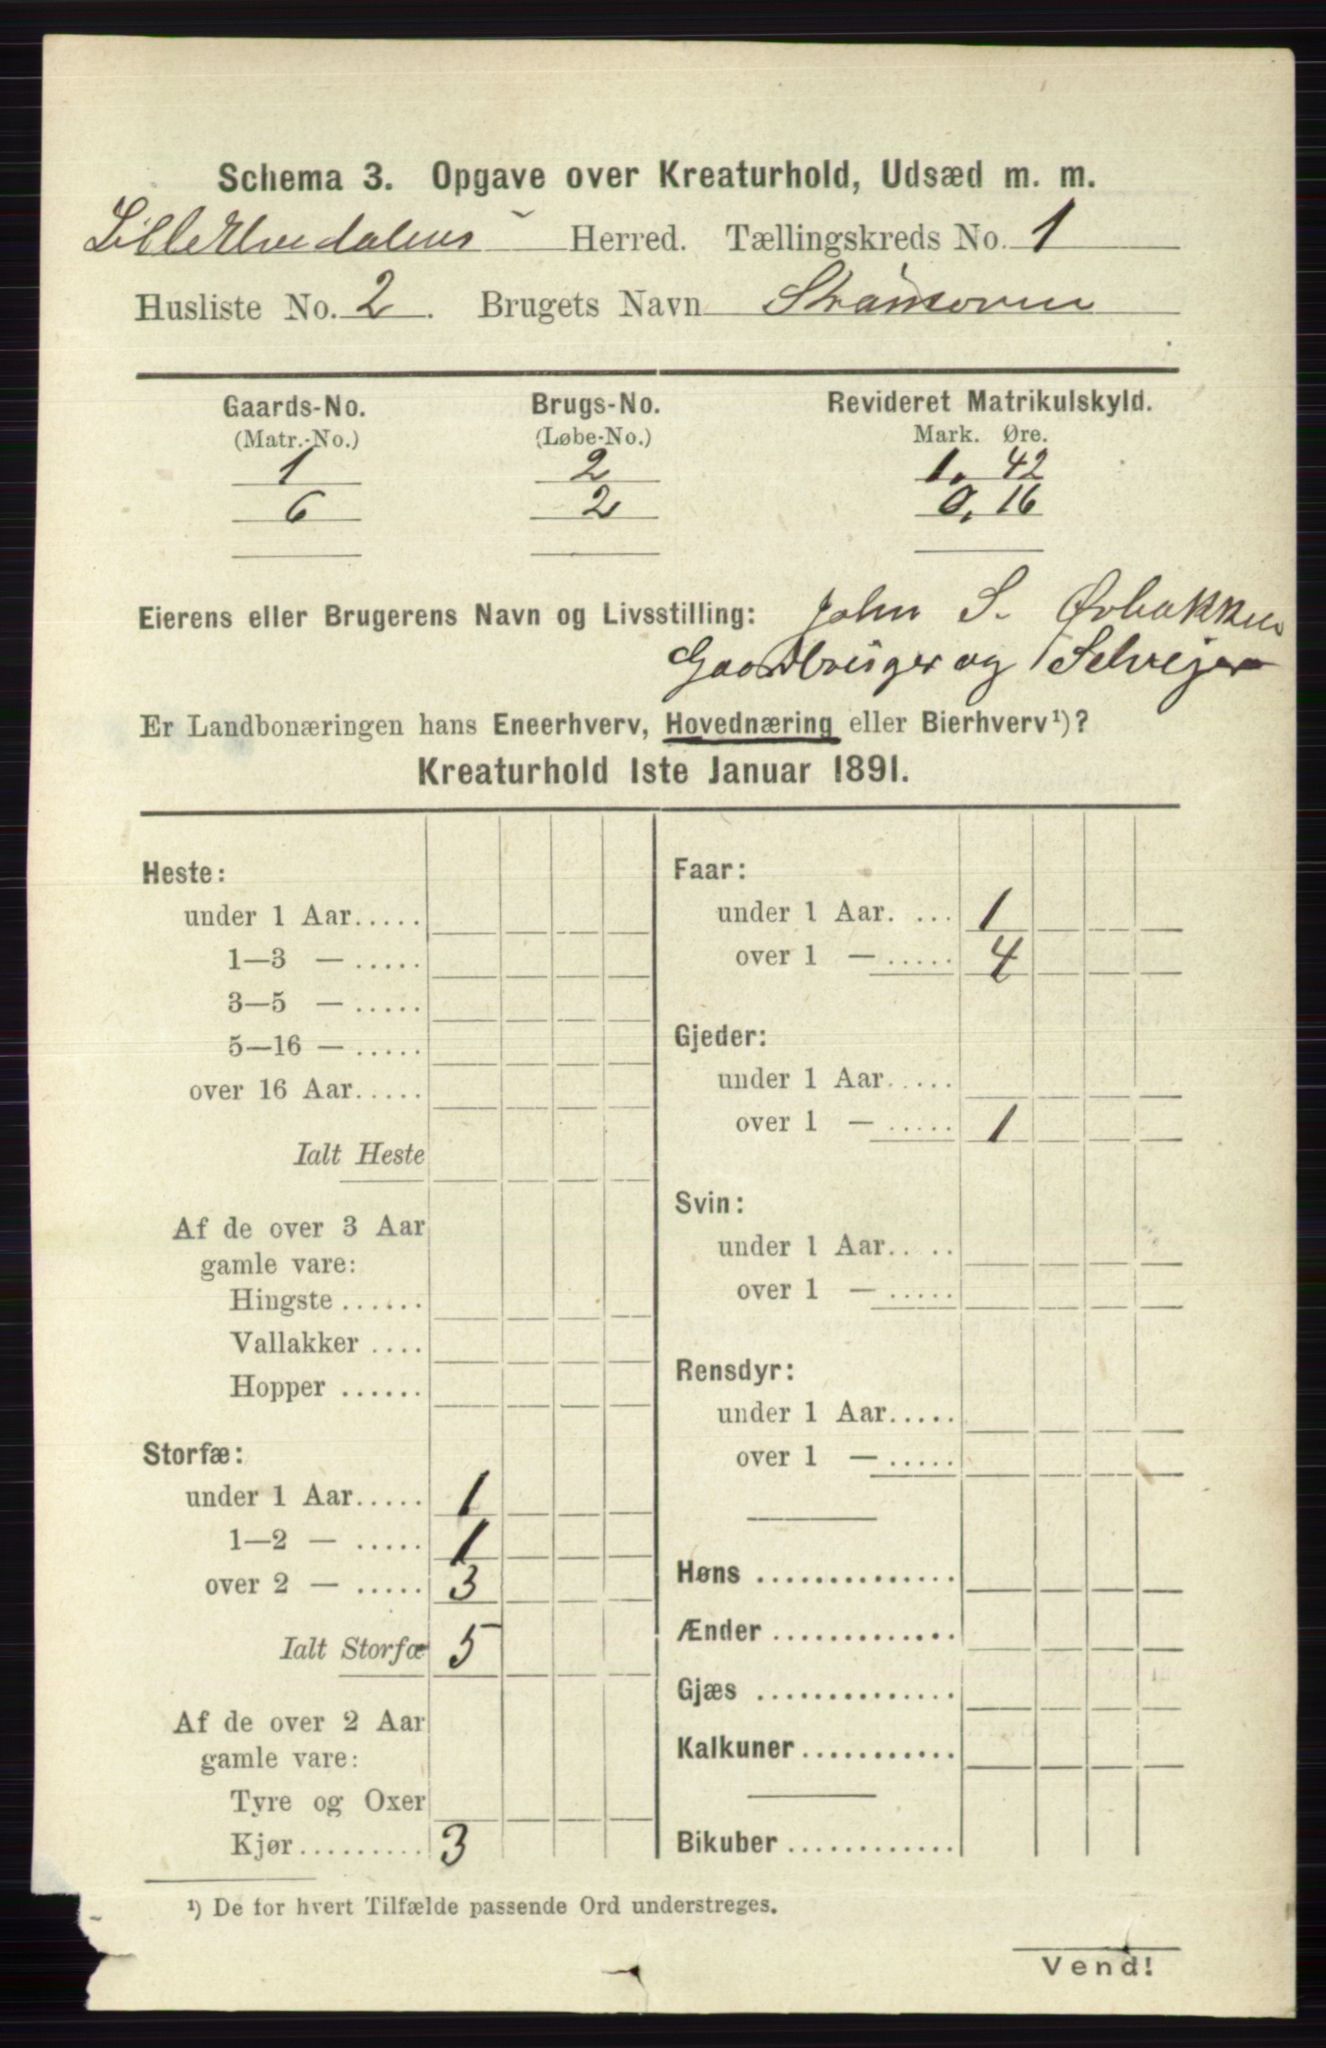 Schema 3. Opgave over Kreaturhold, Udsæd m. m.
LilleElvedalens Herred. Tællingskreds No. 1
Husliste No. 2. Brugets Navn
Gaards-No. Brugs-No. Revideret Matrikulskyld.
(Matr.-No.) (Løbe-No.) Mark. Øre.
1 2 1, 42
6 2 0, 16
Eierens eller Brugerens Navn og Livsstilling: John S. Øvbakken
Gaardbruger og Selveier
Er Landbonæringen hans Eneerhverv, Hovednæring eller Bierhverv¹)?
Kreaturhold 1ste Januar 1891.
Heste:
under 1 Aar.....
1—3 — .....
3—5 — .....
5—16 — .....
over 16 Aar.....
Ialt Heste
Af de over 3 Aar
gamle vare:
Hingste ......
Vallakker ....
Hopper ......
Storfæ:
under 1 Aar..... 1
1—2 — ..... 1
over 2 — ..... 3
Ialt Storfæ 5
Af de over 2 Aar
gamle vare:
Tyre og Oxer
Kjør......... 3
Faar:
under 1 Aar. ... 1
over 1 — ..... 4
Gjeder:
under 1 Aar.....
over 1 — ..... 1
Svin:
under 1 Aar.. ..
over 1 — .....
Rensdyr:
under 1 Aar.....
over 1 — .....
Høns ..............
Ænder .............
Gjæs ..............
Kalkuner...........
Bikuber ............
¹) De for hvert Tilfælde passende Ord understreges.
Vend!